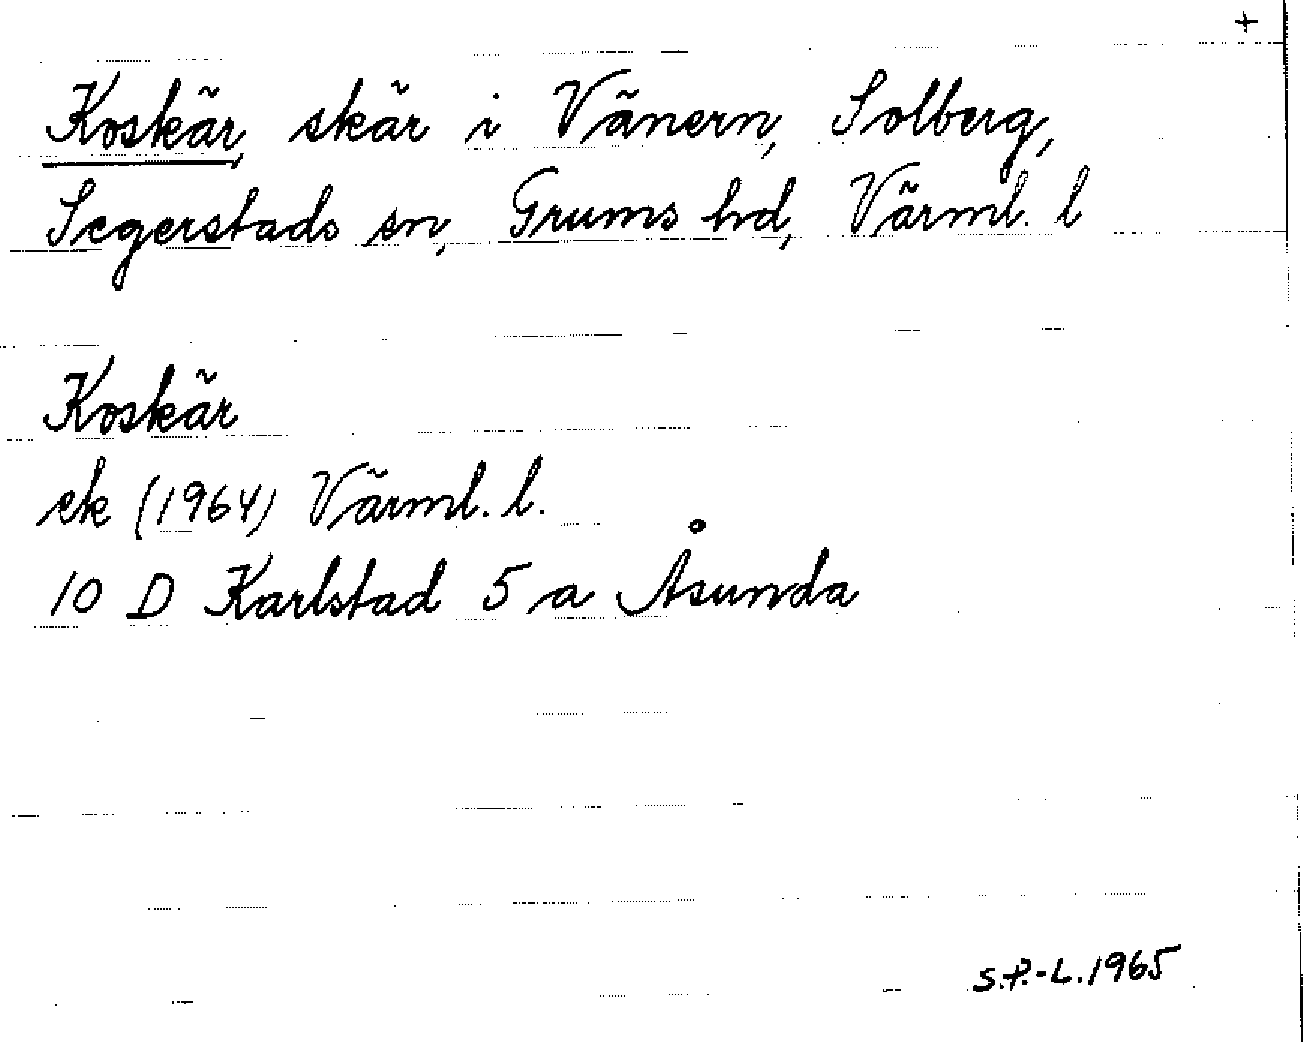 +
Koskär, skär i Vänern, Solberg,
Segerstads sn, Grums hd, Värml. l
Koskär
ek (1964) Värml. l.
10 D Karlstad 5 a Åsunda
S.P.-L. 1965